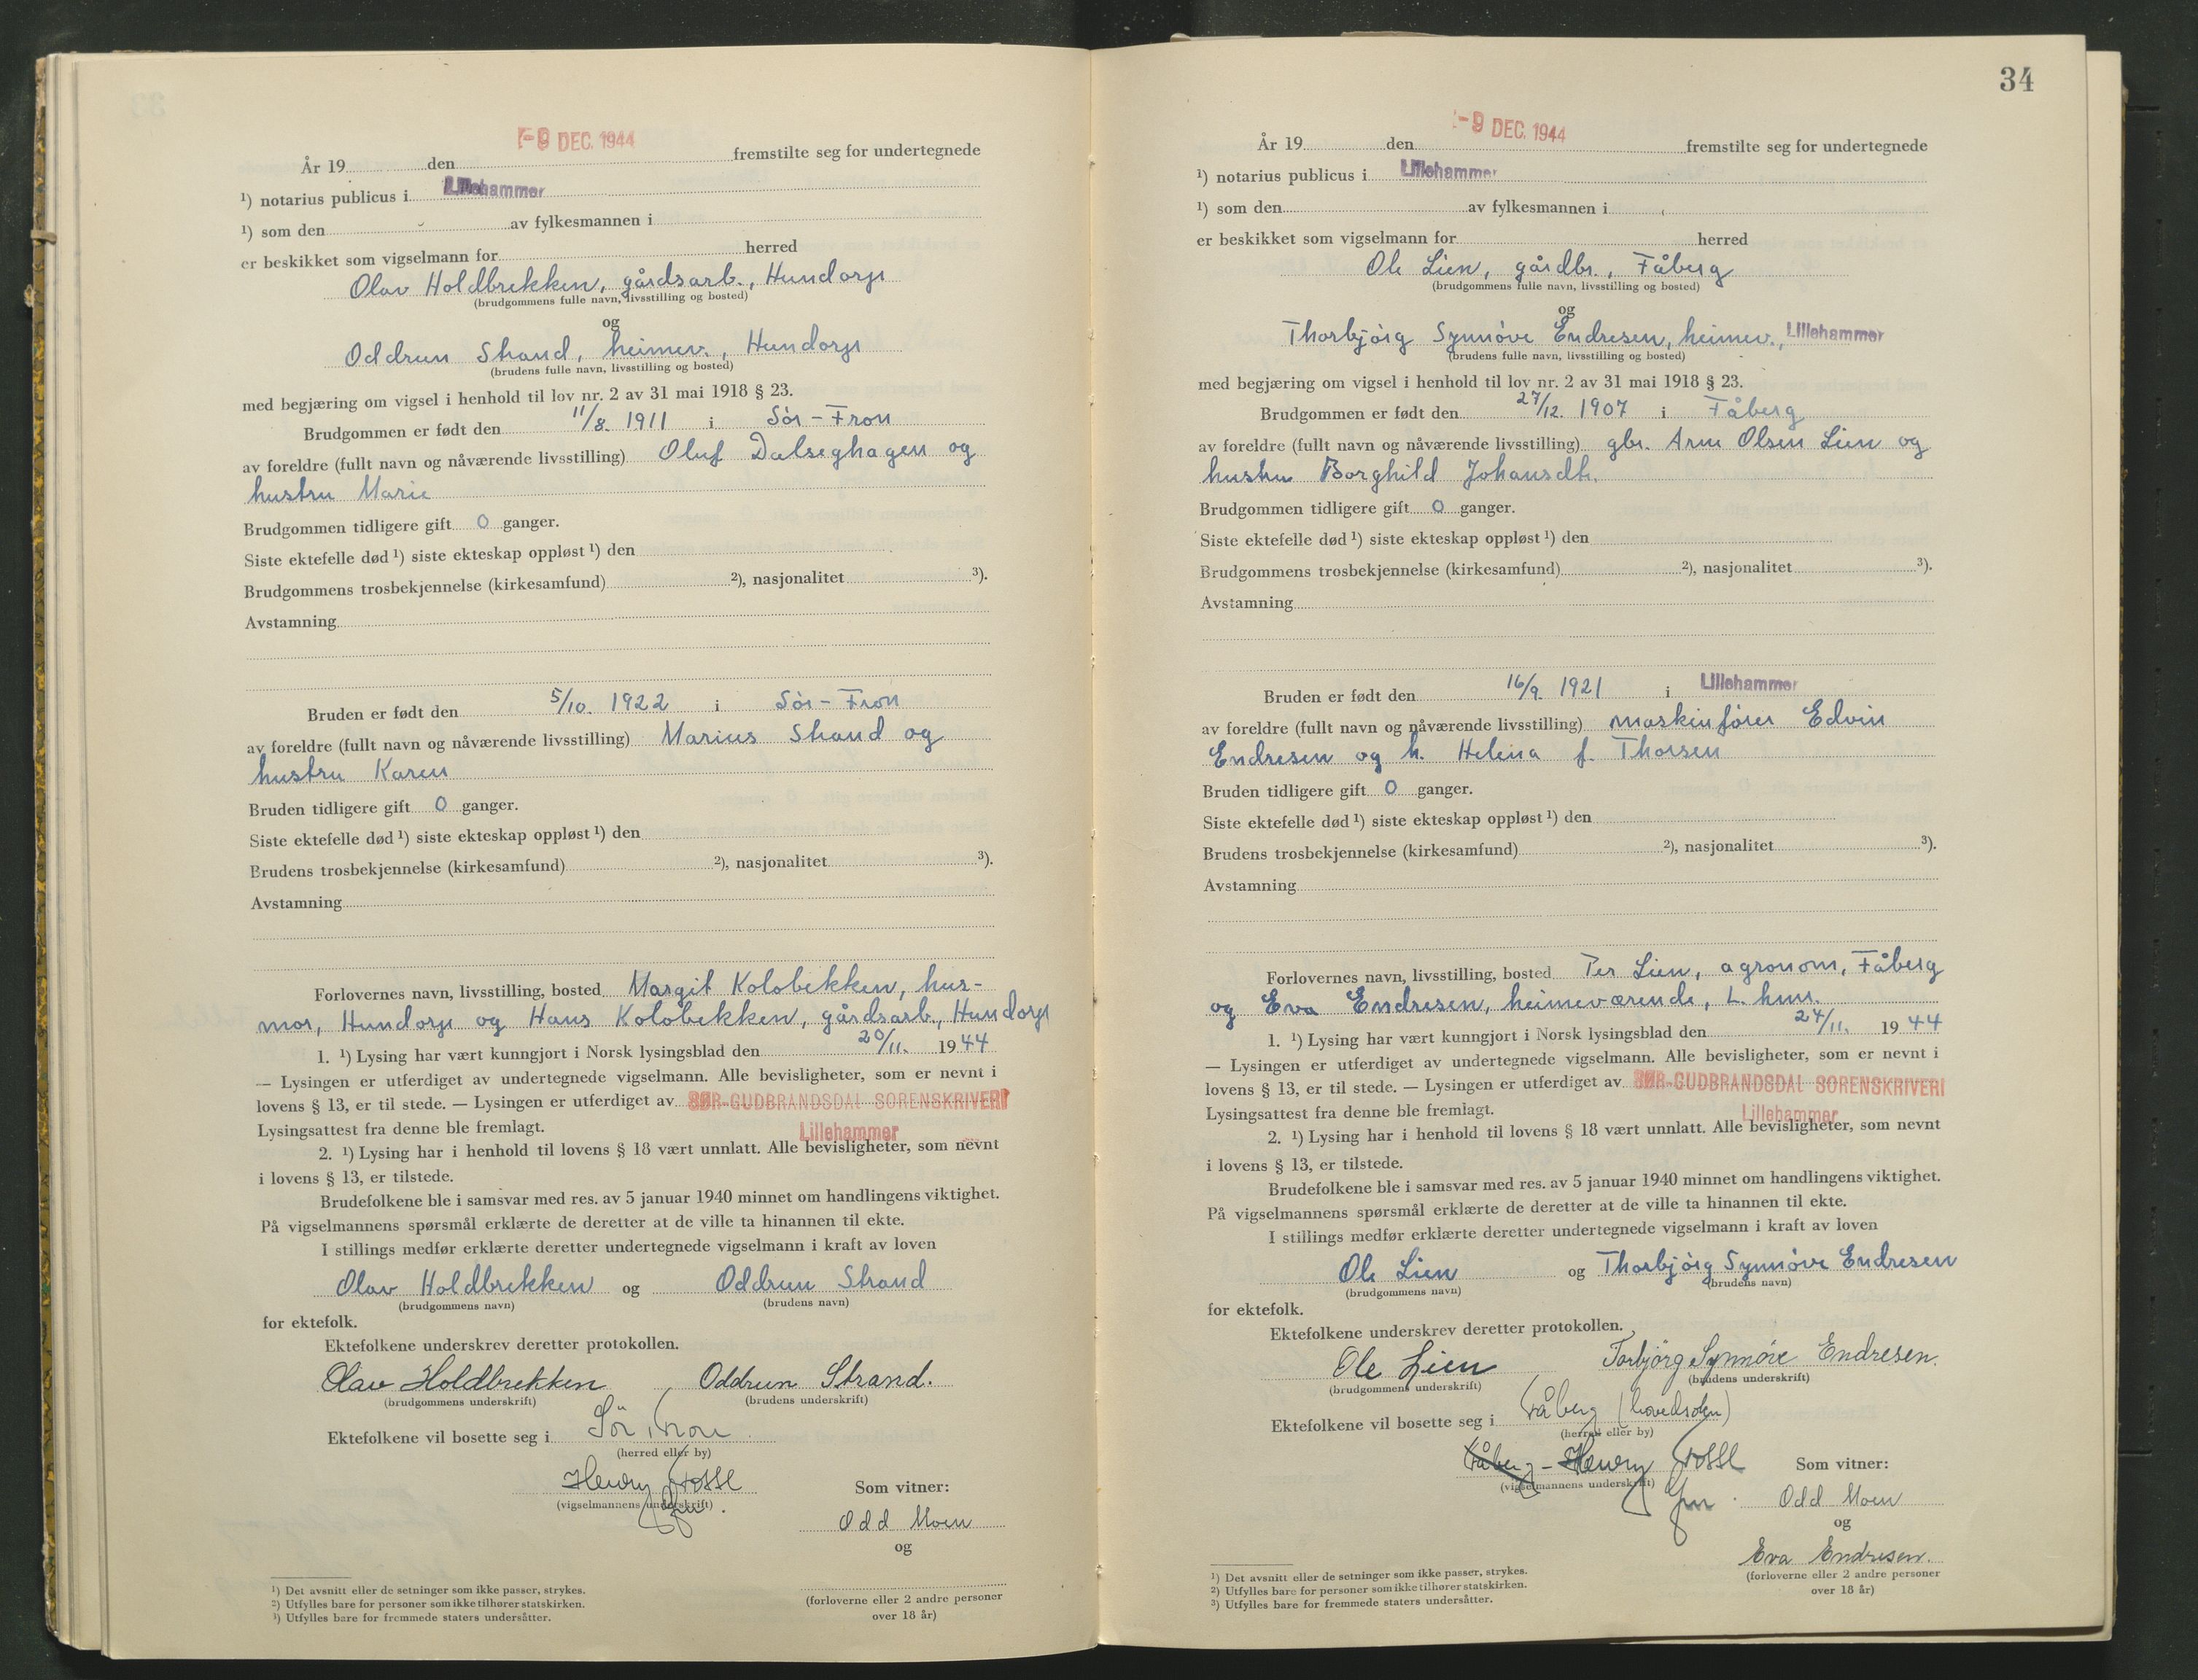 -9 DEC. 1944
År 19 den fremstilte seg for undertegnede
¹) notarius publicus i Lillehammer
¹) som den av fylkesmannen i
er beskikket som vigselmann for herred
Olav Holdbrekken, gårdsarb., Hundorp
(brudgommens fulle navn, livsstilling og bosted)
og
Oddrun Strand, heimev., Hundorp
(brudens fulle navn, livsstilling og bosted)
med begjæring om vigsel i henhold til lov nr. 2 av 31 mai 1918 § 23.
Brudgommen er født den 11/8. 1911 i Sör-Fron
av foreldre (fullt navn og nåværende livsstilling) Oluf Dalseghagen og
hustru Marie
Brudgommen tidligere gift 0 ganger.
Siste ektefelle død ¹) siste ekteskap oppløst ¹) den
Brudgommens trosbekjennelse (kirkesamfund) ²), nasjonalitet ³).
Avstamning
Bruden er født den 5/10. 1922 i Sör-Fron
av foreldre (fullt navn og nåværende livsstilling) Marius Strand og
hustru Karen
Bruden tidligere gift 0 ganger.
Siste ektefelle død ¹) siste ekteskap oppløst ¹) den
Brudens trosbekjennelse (kirkesamfund) ²), nasjonalitet ³).
Avstamning
Forlovernes navn, livsstilling, bosted Margit Kolobekken, hus-
mor, Hundorp og Hans Kolobekken, gårdsarb., Hundorp
1. ¹) Lysing har vært kunngjort i Norsk lysingsblad den 20/11. 1944
— Lysingen er utferdiget av undertegnede vigselmann. Alle bevisligheter, som er nevnt i
lovens § 13, er til stede. — Lysingen er utferdiget av SØR-GUDBRANDSDAL SORENSKRIVERI
Lysingsattest fra denne ble fremlagt. Lillehammer
2. ¹) Lysing har i henhold til lovens § 18 vært unnlatt. Alle bevisligheter, som nevnt
i lovens § 13, er tilstede.
Brudefolkene ble i samsvar med res. av 5 januar 1940 minnet om handlingens viktighet.
På vigselmannens spørsmål erklærte de deretter at de ville ta hinannen til ekte.
I stillings medfør erklærte deretter undertegnede vigselmann i kraft av loven
Olav Holdbrekken og Oddrun Strand
(brudgommens navn) (brudens navn)
for ektefolk.
Ektefolkene underskrev deretter protokollen.
Olav Holdbrekken Oddrun Strand.
(brudgommens underskrift) (brudens underskrift)
Ektefolkene vil bosette seg i Sör Fron
(herred eller by)
Henry
(vigselmannens underskrift)
Som vitner:
Odd Moen
og
(forloverne eller 2 andre personer
over 18 år)
¹) Det avsnitt eller de setninger som ikke passer, strykes.
²) Utfylles bare for personer som ikke tilhører statskirken.
³) Utfylles bare for fremmede staters undersåtter.
34
-9 DEC. 1944
År 19 den fremstilte seg for undertegnede
¹) notarius publicus i Lillehammer
¹) som den av fylkesmannen i
er beskikket som vigselmann for herred
Ole Lien, gårdbr., Fåberg
(brudgommens fulle navn, livsstilling og bosted)
og
Thorbjörg Synnöve Endresen, heimev., Lillehammer
(brudens fulle navn, livsstilling og bosted)
med begjæring om vigsel i henhold til lov nr. 2 av 31 mai 1918 § 23.
Brudgommen er født den 27/12. 1907 i Fåberg
av foreldre (fullt navn og nåværende livsstilling) gbr. Arne Olsen Lien og
hustru Borghild Johansdtr.
Brudgommen tidligere gift 0 ganger.
Siste ektefelle død ¹) siste ekteskap oppløst ¹) den
Brudgommens trosbekjennelse (kirkesamfund) ²), nasjonalitet ³).
Avstamning
Bruden er født den 16/9. 1921 i Lillehammer
av foreldre (fullt navn og nåværende livsstilling) maskinfører Edvin
Endresen og h. Helena f. Thorsen
Bruden tidligere gift 0 ganger.
Siste ektefelle død ¹) siste ekteskap oppløst ¹) den
Brudens trosbekjennelse (kirkesamfund) ²), nasjonalitet ³).
Avstamning
Forlovernes navn, livsstilling, bosted Per Lien, agronom, Fåberg
og Eva Endresen, heimeværende, L.hmr.
1. ¹) Lysing har vært kunngjort i Norsk lysingsblad den 24/11. 1944
— Lysingen er utferdiget av undertegnede vigselmann. Alle bevisligheter, som er nevnt i
lovens § 13, er til stede. — Lysingen er utferdiget av SØR-GUDBRANDSDAL SORENSKRIVERI
Lysingsattest fra denne ble fremlagt. Lillehammer
2. ¹) Lysing har i henhold til lovens § 18 vært unnlatt. Alle bevisligheter, som nevnt
i lovens § 13, er tilstede.
Brudefolkene ble i samsvar med res. av 5 januar 1940 minnet om handlingens viktighet.
På vigselmannens spørsmål erklærte de deretter at de ville ta hinannen til ekte.
I stillings medfør erklærte deretter undertegnede vigselmann i kraft av loven
Ole Lien og Thorbjörg Synnöve Endresen
(brudgommens navn) (brudens navn)
for ektefolk.
Ektefolkene underskrev deretter protokollen.
Ole Lien Torbjörg Synnöve Endresen.
(brudgommens underskrift) (brudens underskrift)
Ektefolkene vil bosette seg i Fåberg (hovedsoken)
(herred eller by)
Fåberg - Henry
(vigselmannens underskrift)
Som vitner:
Odd Moen
og
Eva Endresen.
(forloverne eller 2 andre personer
over 18 år)
¹) Det avsnitt eller de setninger som ikke passer, strykes.
²) Utfylles bare for personer som ikke tilhører statskirken.
³) Utfylles bare for fremmede staters undersåtter.